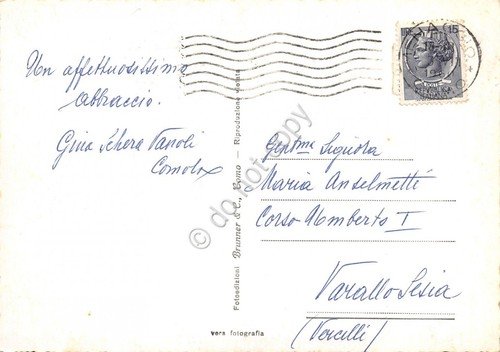 Un affettuosissimo
abbraccio.
Gina Schera Vanoli
Gent.ma Signora
Maria Anselmetti
Corso Umberto I
Varallo Sesia
(Vercelli)
Fotoedizioni Brunner & C., Como — Riproduzione vietata
vera fotografia
15
do not copy